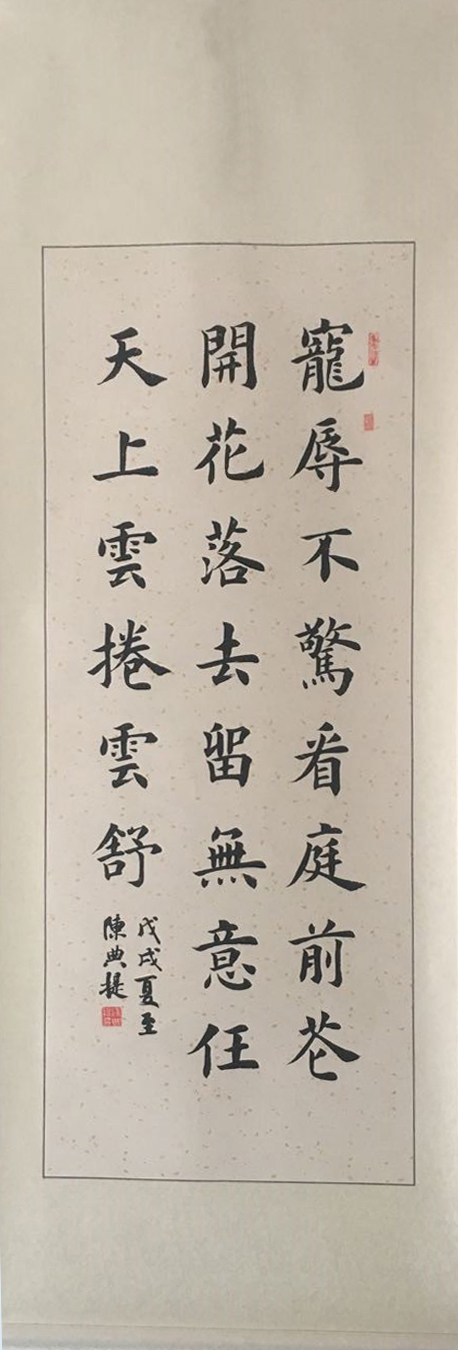 寵辱不驚看庭前花
開花落去留無意任
天上雲捲雲舒
戊戌夏至
陳典提